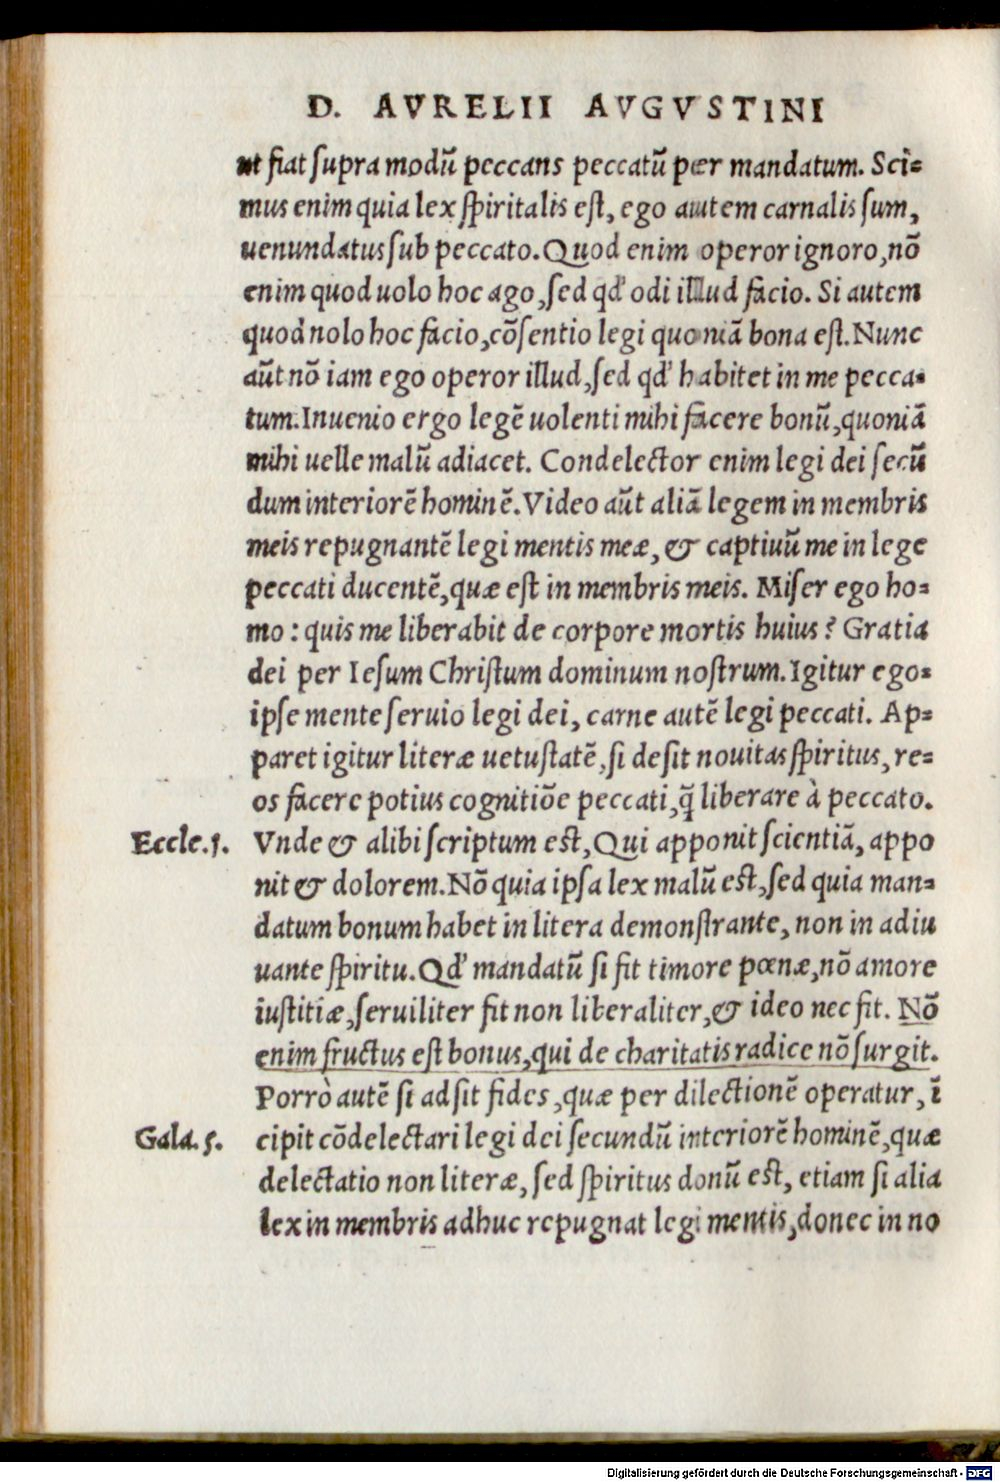 D. AVRELII AVGVSTINI
ut fiat ſupra modũ peccans peccatũ per mandatum. Sci-
mus enim quia lex ſpiritalis eſt, ego autem carnalis ſum,
uenundatus ſub peccato. Quod enim operor ignoro, nõ
enim quod uolo hoc ago, ſed qd' odi illud facio. Si autem
quod nolo hoc facio, cõſentio legi quoniã bona eſt. Nunc
aũt nõ iam ego operor illud, ſed qd' habitet in me pecca-
tum. Inuenio ergo legẽ uolenti mihi facere bonũ, quoniã
mihi uelle malũ adiacet. Condelector enim legi dei ſecũ
dum interiorẽ hominẽ. Video aũt aliã legem in membris
meis repugnantẽ legi mentis meæ, & captiuũ me in lege
peccati ducentẽ, quæ eſt in membris meis. Miſer ego ho-
mo: quis me liberabit de corpore mortis huius? Gratia
dei per Ieſum Chriſtum dominum noſtrum. Igitur ego-
ipſe mente ſeruio legi dei, carne autẽ legi peccati. Ap-
paret igitur literæ uetuſtatẽ, ſi deſit nouitas ſpiritus, re-
os facere potius cognitiõe peccati, q̃ liberare à peccato.
Eccle.1. Vnde & alibi ſcriptum eſt, Qui apponit ſcientiã, appo
nit & dolorem. Nõ quia ipſa lex malũ eſt, ſed quia man-
datum bonum habet in litera demonſtrante, non in adiu
uante ſpiritu. Qd' mandatũ ſi fit timore pœnæ, nõ amore
iuſtitiæ, ſeruiliter fit non liberaliter, & ideo nec fit. Nõ
enim fructus eſt bonus, qui de charitatis radice nõ ſurgit.
Porrò autẽ ſi adſit fides, quæ per dilectionẽ operatur, ĩ
Gala.5. cipit cõdelectari legi dei ſecundũ interiorẽ hominẽ, quæ
delectatio non literæ, ſed ſpiritus donũ eſt, etiam ſi alia
lex in membris adhuc repugnat legi mentis, donec in no
Digitalisierung gefördert durch die Deutsche Forschungsgemeinschaft - DFG